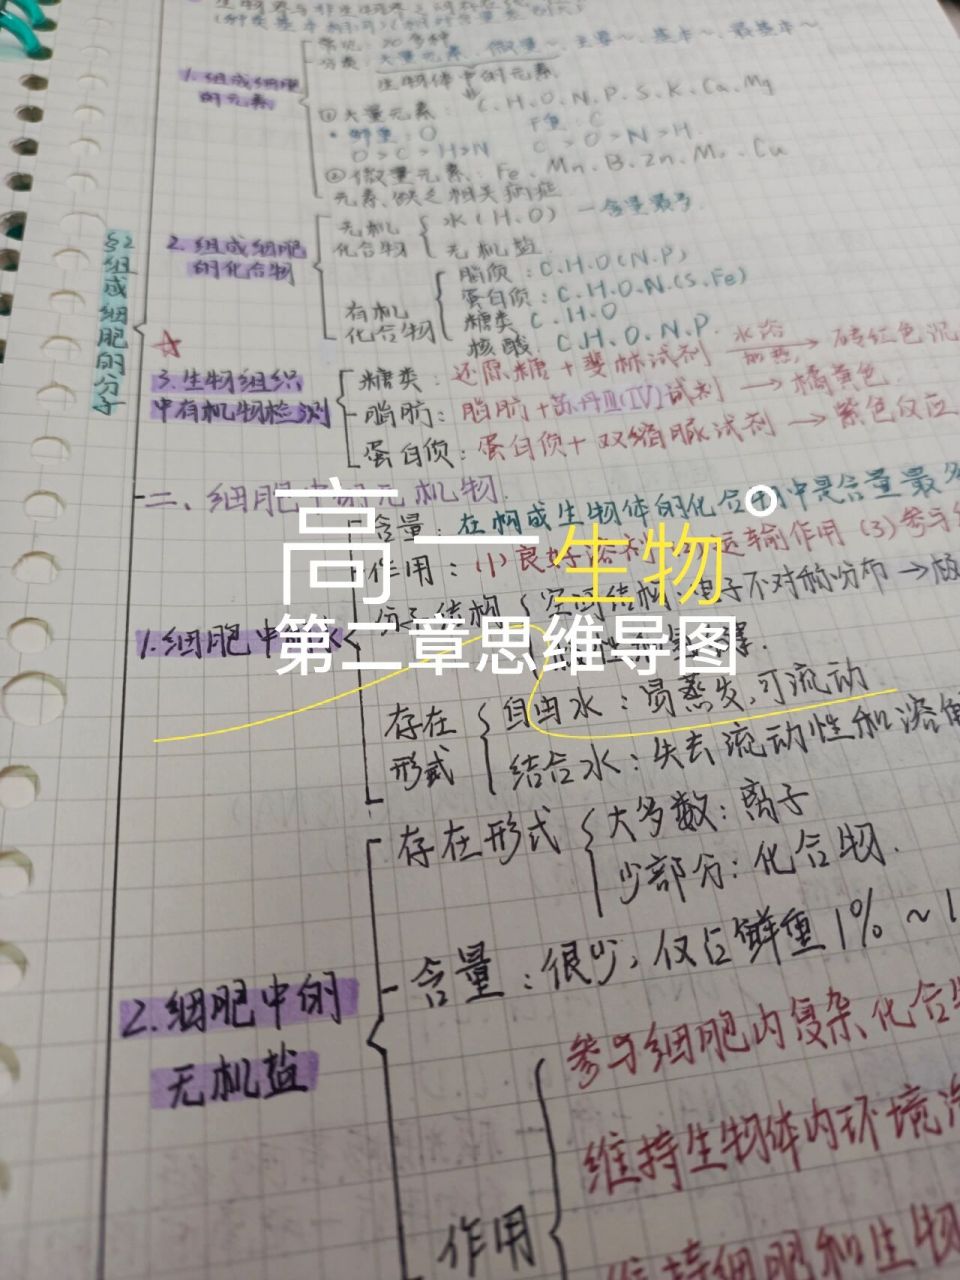 (种类基本相同)(相对含量差别大)
常见：20多种
分类：大量元素、微量～、主要～、基本～、最基本～
生物体中的元素
1.组成细胞的元素
①大量元素：C.H.O.N.P.S.K.Ca.Mg
·鲜重：O 干重：C
O>C>H>N C>O>N>H
②微量元素：Fe、Mn、B、Zn、Mo、Cu
元素缺乏相关病症
§2组成细胞的分子
2.组成细胞的化合物
无机化合物
水(H.O)—含量最多
无机盐
有机化合物
脂质：C.H.O(N.P)
蛋白质：C.H.O.N.(S.Fe)
糖类 C.H.O
核酸：C.H.O.N.P.
☆
3.生物组织中有机物检测
糖类：还原糖+斐林试剂 水浴加热→砖红色沉
脂肪：脂肪+苏丹III(IV)试剂→橘黄色
蛋白质：蛋白质+双缩脲试剂→紫色反应
二、细胞中的无机物
含量：在构成生物体的化合物中是含量最多
作用：(1)良好溶剂 运输作用(3)参与
高一生物°
第二章思维导图
1.细胞中的水
分子结构
空间结构 电子不对称分布→极
存在形式
自由水：易蒸发,可流动
结合水：失去流动性和溶解
2.细胞中的无机盐
存在形式
大多数：离子
少部分：化合物.
含量：很少,仅占鲜重1%～1
作用
参与细胞内复杂化合
维持生物体内环境
维持细胞和生物